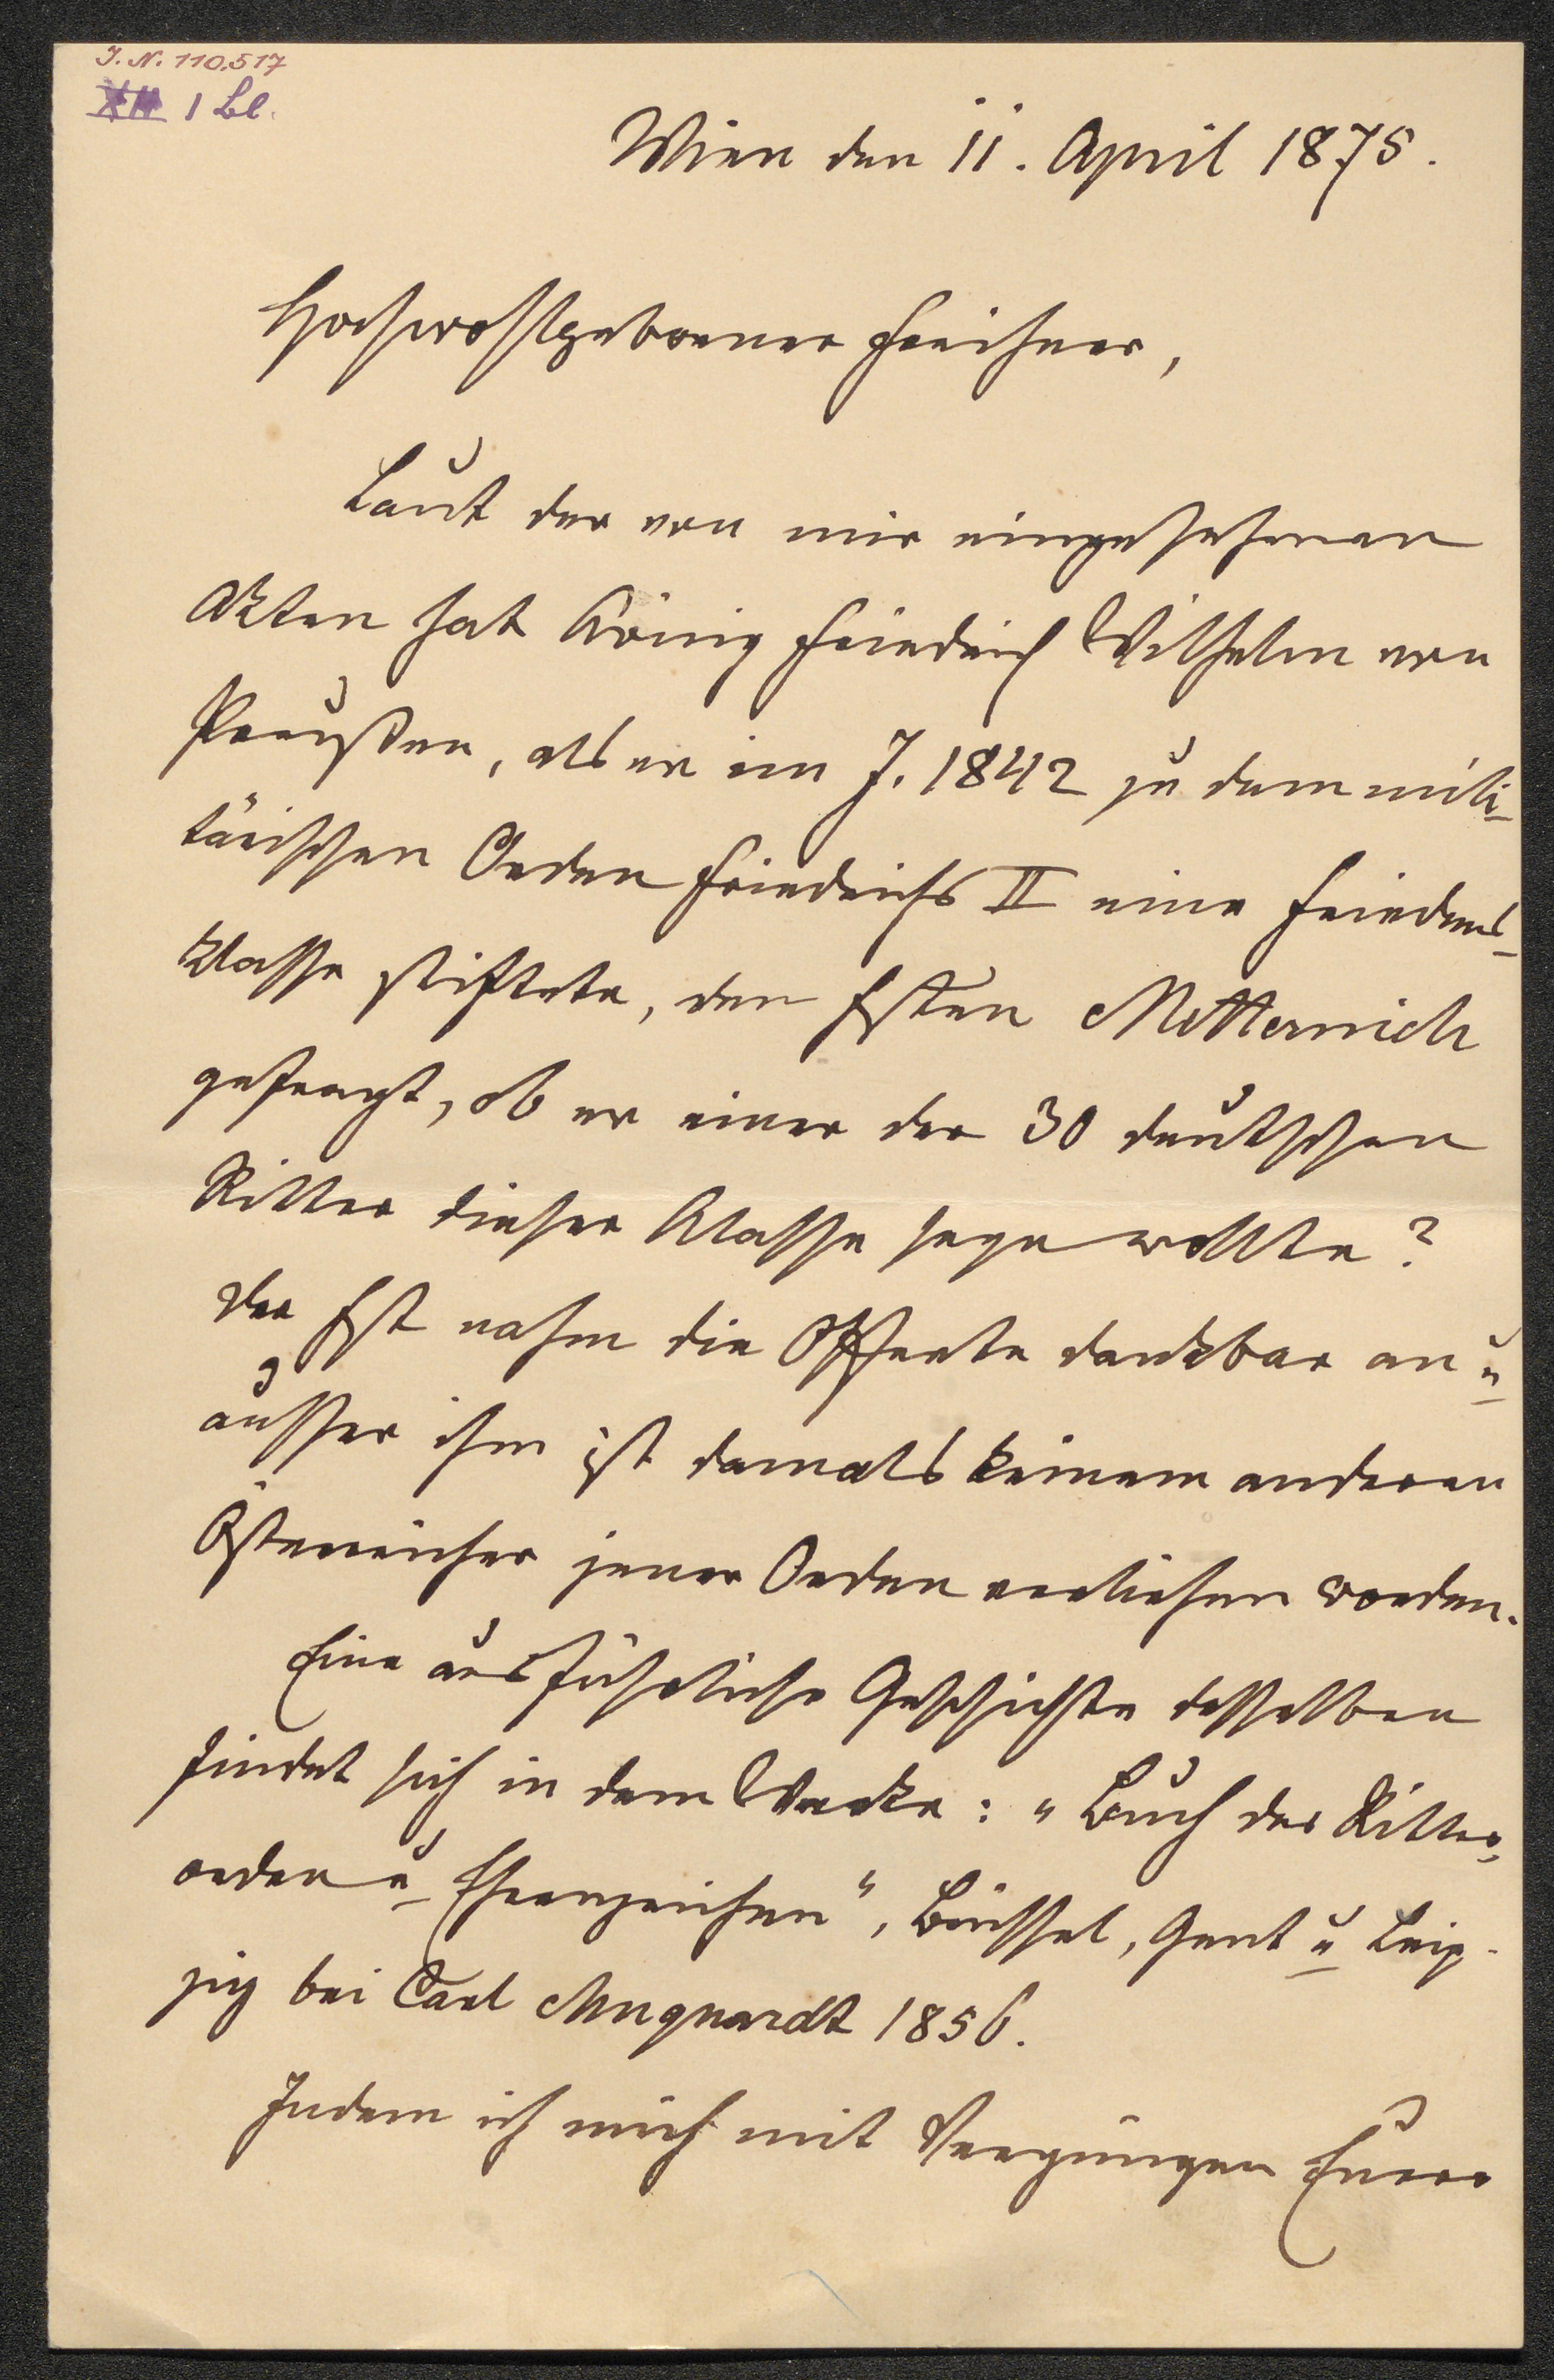 J. N. 110.517
1 Bl.
Wien den 11. April 1875.
Hochwohlgeborener Freiherr,
Laut der von mir eingesehenen
Akten hat König Friedrich Wilhelm von
Preußen, als er im J. 1842 zu dem mili-
tärischen Orden Friedrichs II eine Friedens-
klasse stiftete, den Fsten Metternich
gefragt, ob er einer der 30 deutschen
Ritter dieser Klasse seyn wollte?
Der Fst nahm die Offerte dankbar an u
ausser ihm ist damals keinem anderen
Österreicher jener Orden verliehen worden.
Eine ausführliche Geschichte desselben
findet sich in dem Werke: „Buch der Ritter-
orden u Ehrenzeichen", Brüssel, Gent u Leip-
zig bei Carl Muquardt 1856.
Indem ich mich mit Vergnügen Euerer